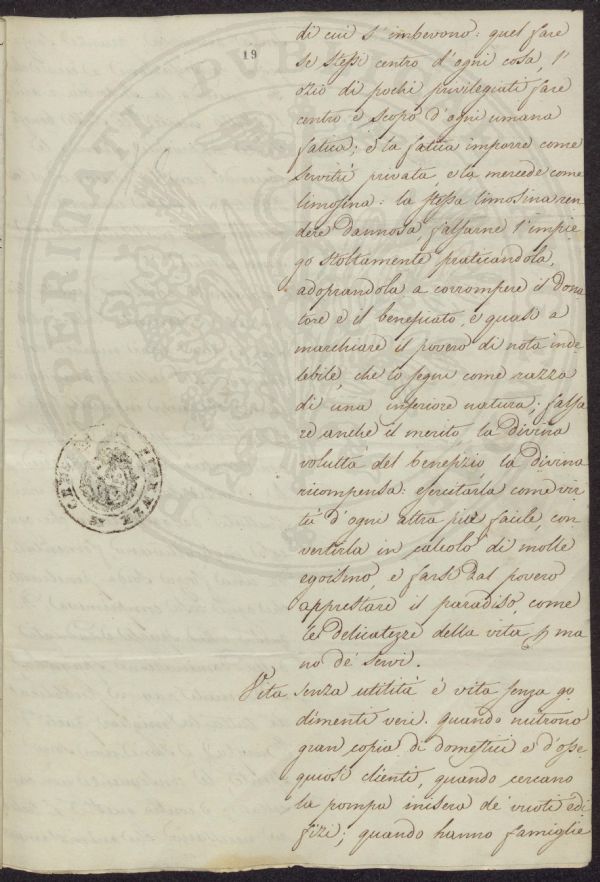 19
di cui s'imbevono: quel fare
se stessi centro d'ogni cosa, l'
ozio di pochi privilegiati fare
centro e scopo d'ogni umana
fatica; e la fatica imporre come
servitù privata, e la mercede come
limosina: la stessa limosina ren
dere dannosa, falsarne l'impie
go stoltamente praticandola,
adoprandola a corrompere il dona
tore e il beneficato, e quasi a
marchiare il povero di nota inde
lebile, che lo segni come razza
di una inferiore natura; falsa
re anche il merito, la divina
voluttà del benefizio la divina
ricompensa: esercitarla come vir
tù d'ogni altra più facile, con
vertirla in calcolo di molle
egoismo e farsi dal povero
apprestare il paradiso, come
le delicatezze della vita p ma
no de' servi.
Vita senza utilità è vita senza go
dimenti veri. Quando nutrono
gran copia di domestici e d'osse
quiosi clienti, quando cercano
la pompa misera de' vuoti edi
fizi; quando hanno famiglie
PERITATI PUBLIC